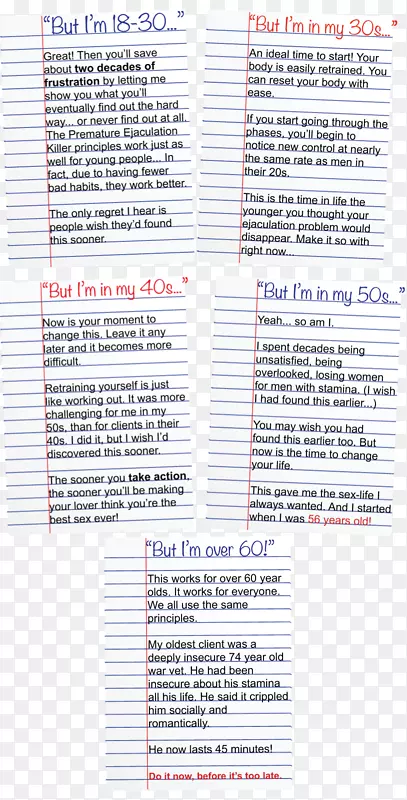 “But I’m 18-30...”
Great! Then you’ll save
about two decades of
frustration by letting me
show you what you’ll
eventually find out the hard
way... or never find out at all.
The Premature Ejaculation
Killer principles work just as
well for young people... In
fact, due to having fewer
bad habits, they work better.
The only regret I hear is
people wish they’d found
this sooner.
“But I’m in my 30s...”
An ideal time to start! Your
body is easily retrained. You
can reset your body with
ease.
If you start going through the
phases, you’ll begin to
notice new control at nearly
the same rate as men in
their 20s.
This is the time in life the
younger you thought your
ejaculation problem would
disappear. Make it so with
right now...
“But I’m in my 40s...”
Now is your moment to
change this. Leave it any
later and it becomes more
difficult.
Retraining yourself is just
like working out. It was more
challenging for me in my
50s, than for clients in their
40s. I did it, but I wish I’d
discovered this sooner.
The sooner you take action,
the sooner you’ll be making
your lover think you’re the
best sex ever!
“But I’m in my 50s...”
Yeah... so am I.
I spent decades being
unsatisfied, being
overlooked, losing women
for men with stamina. (I wish
I had found this earlier...)
You may wish you had
found this earlier too. But
now is the time to change
your life.
This gave me the sex-life I
always wanted. And I started
when I was 56 years old!
“But I’m over 60!”
This works for over 60 year
olds. It works for everyone.
We all use the same
principles.
My oldest client was a
deeply insecure 74 year old
war vet. He had been
insecure about his stamina
all his life. He said it crippled
him socially and
romantically.
He now lasts 45 minutes!
Do it now, before it’s too late.